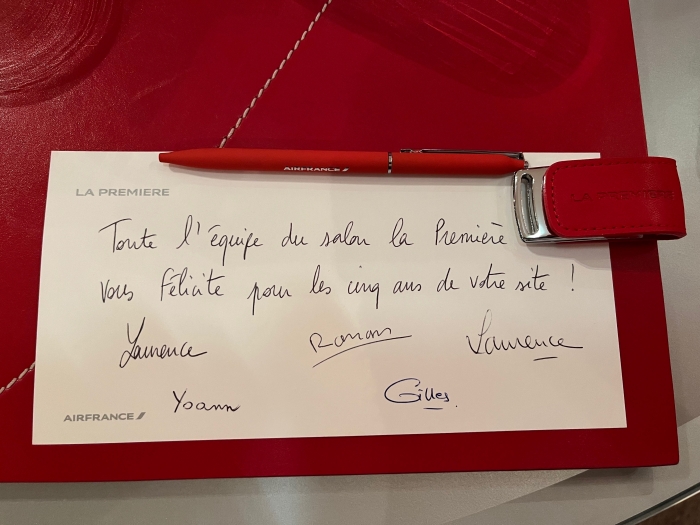 AIRFRANCE
LA PREMIERE
LA PREMIERE
Toute l'équipe du salon la Première
vous félicite pour les cinq ans de votre site !
Laurence
Romans
Laurence
Yoann
Gilles
AIRFRANCE